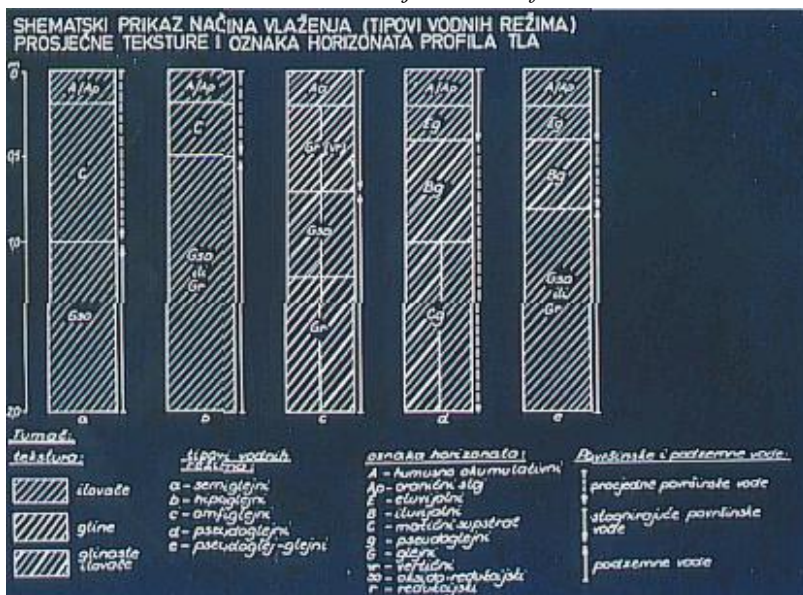 SHEMATSKI PRIKAZ NAČINA VLAŽENJA (TIPOVI VODNIH REŽIMA)
PROSJEČNE TEKSTURE I OZNAKA HORIZONATA PROFILA TLA
0
A/Ap
A/Ap
Aa
A/Ap
A/Ap
C
Eg
Eg
0,5
Gr (vr)
C
Bg
Bg
Gso
1,0
Gso
ili
Gr
Gso
ili
Gr
Gso
Gr
Cg
2,0
a
b
c
d
e
Tumač:
tekstura:
ilovače
gline
glinaste
ilovače
tipovi vodnih
režima:
a - semiglejni
b - hipoglejni
c - amfiglejni
d - pseudoglejni
e - pseudoglej-glejni
oznaka horizonata:
A - humusno akumulativni
Ap - oranični sloj
E - eluvijalni
B - iluvijalni
C - matični supstrat
g - pseudoglejni
G - glejni
vr - vertični
so - oksido-redukcijski
r - redukcijski
Površinske i podzemne vode:
procjedne površinske vode
stagnirajuće površinske
vode
podzemne vode